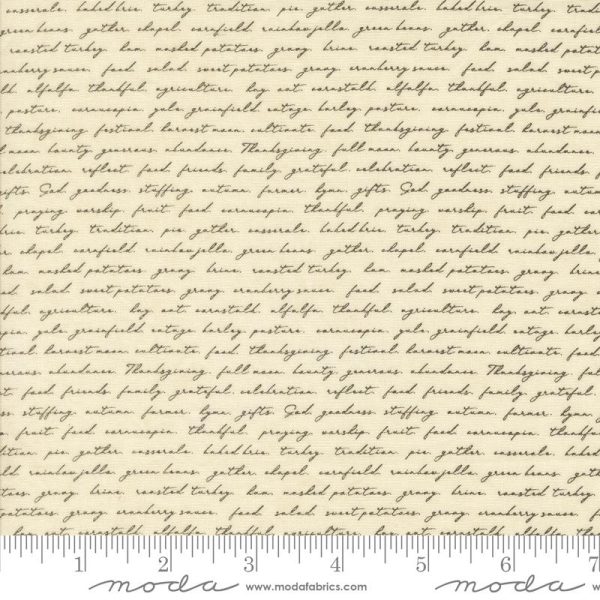 casserole. baked brie. turkey. tradition. pie. gather. casserole. baked brie. turkey. tradi
green beans. gather. chapel. cornfield. rainbow jello. green beans. gather. chapel. cornfiel
roasted turkey. ham. mashed potatoes. gravy. brine. roasted turkey. ham. mashed potat
cranberry sauce. food. salad. sweet potatoes. gravy. cranberry sauce. food. salad. sweet p
lk. alfalfa. thankful. agriculture. hay. oat. cornstalk. alfalfa. thankful. agriculture.
pasture. cornucopia. yule. grainfield. cottage. barley. pasture. cornucopia. yule. grainfie
thanksgiving. festival. harvest moon. cultivate. food. thanksgiving. festival. harvest moon
l moon. bounty. generous. abundance. Thanksgiving. full moon. bounty. generous. abundance.
celebration. reflect. food. friends. family. grateful. celebration. reflect. food. friends. f
gifts. God. goodness. stuffing. autumn. farmer. hymn. gifts. God. goodness. stuffing. autum
praying. worship. fruit. food. cornucopia. thankful. praying. worship. fruit. food. cor
brie. turkey. tradition. pie. gather. casserole. baked brie. turkey. tradition. pie. gather
r. chapel. cornfield. rainbow jello. green beans. gather. chapel. cornfield. rainbow jello.
ham. mashed potatoes. gravy. brine. roasted turkey. ham. mashed potatoes. gravy. brine
od. salad. sweet potatoes. gravy. cranberry sauce. food. salad. sweet potatoes. gravy
kful. agriculture. hay. oat. cornstalk. alfalfa. thankful. agriculture. hay. oat. cornsta
opia. yule. grainfield. cottage. barley. pasture. cornucopia. yule. grainfield. cottage. barley
tival. harvest moon. cultivate. food. thanksgiving. festival. harvest moon. cultivate. food
nerous. abundance. Thanksgiving. full moon. bounty. generous. abundance. Thanksgiving. ful
t. food. friends. family. grateful. celebration. reflect. food. friends. family. grateful.
ss. stuffing. autumn. farmer. hymn. gifts. God. goodness. stuffing. autumn. farmer. hymn
p. fruit. food. cornucopia. thankful. praying. worship. fruit. food. cornucopia. thankfu
dition. pie. gather. casserole. baked brie. turkey. tradition. pie. gather. casserole. baked
ld. rainbow jello. green beans. gather. chapel. cornfield. rainbow jello. green beans. gath
toes. gravy. brine. roasted turkey. ham. mashed potatoes. gravy. brine. roasted turkey.
potatoes. gravy. cranberry sauce. food. salad. sweet potatoes. gravy. cranberry sauce. f
hay. oat. cornstalk. alfalfa. thankful. agriculture. hay. oat. cornstalk. alfalfa. tha
1 2 3 4 5 6 7
moda www.modafabrics.com moda www.modafabrics.com